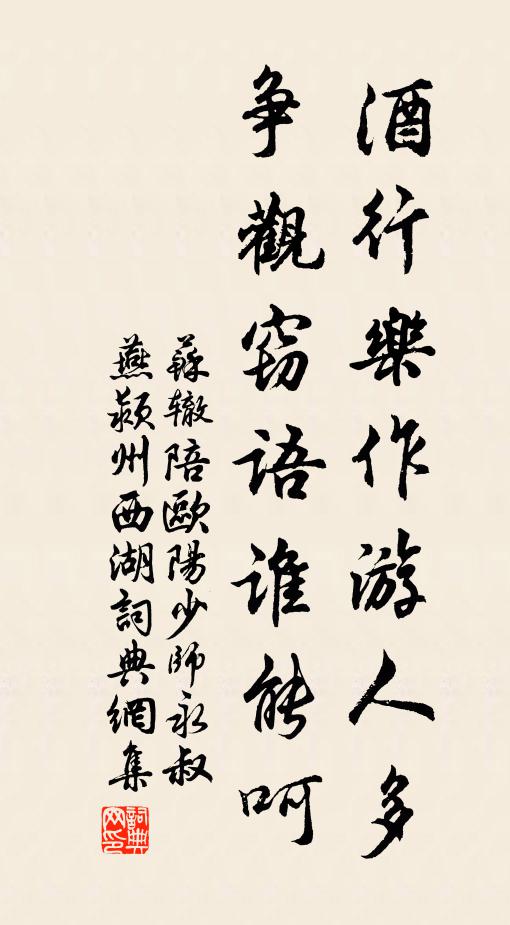 酒行樂作游人多
争觀窃語誰能呵
蘇辙陪歐陽少師永叔
燕颍州西湖詞典網集
詞典
网印